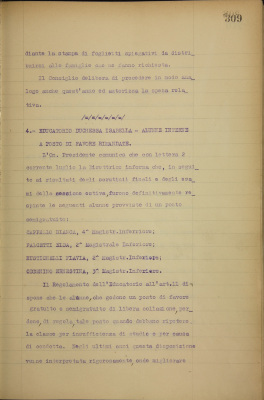 309
diante la stampa di foglietti spiegativi da distri_
buirsi alle famiglie che ne fanno richiesta.
Il Consiglio delibera di procedere in modo ana_
logo anche quest'anno ed autorizza la spesa rela_
tiva.
/=/=/=/=/=/=/
4.- EDUCATORIO DUCHESSA ISABELLA - ALUNNE INTERNE
A POSTO DI FAVORE RIMANDATE.
L'On. Presidente comunica che con lettera 2
corrente luglio la Direttrice informa che, in segui_
to ai risultati degli scrutinii finali e degli esa_
mi della sessione estiva, furono definitivamente re_
spinte le seguenti alunne provviste di un posto
semigratuito:
BIANCA, 4ª Magistr.Inferiore;
ELDA, 2ª Magistrale Inferiore;
FLAVIA, 2ª Magistr.Inferiore;
3ª Magistr.Inferiore.
Il Regolamento dell'Educatorio all'art.11 di=
spone che le alunne, che godono un posto di favore
gratuito o semigratuito di libera collazione, per_
dono, di regola, tale posto quando debbano ripetere
la classe per insufficienza di studio o per causa
di condotta. Negli ultimi anni questa disposizione
venne interpretata rigorosamente, onde migliorare